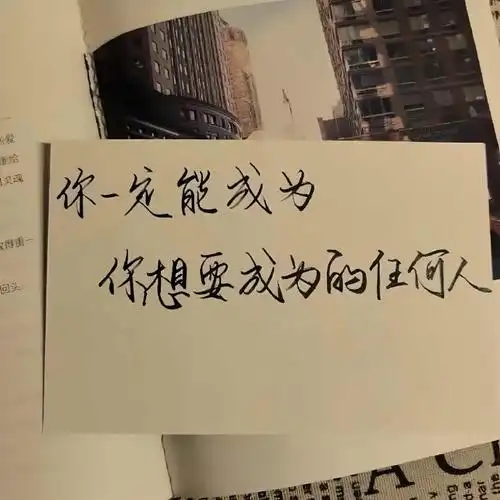 你一定能成为
你想要成为的任何人
回头
A C